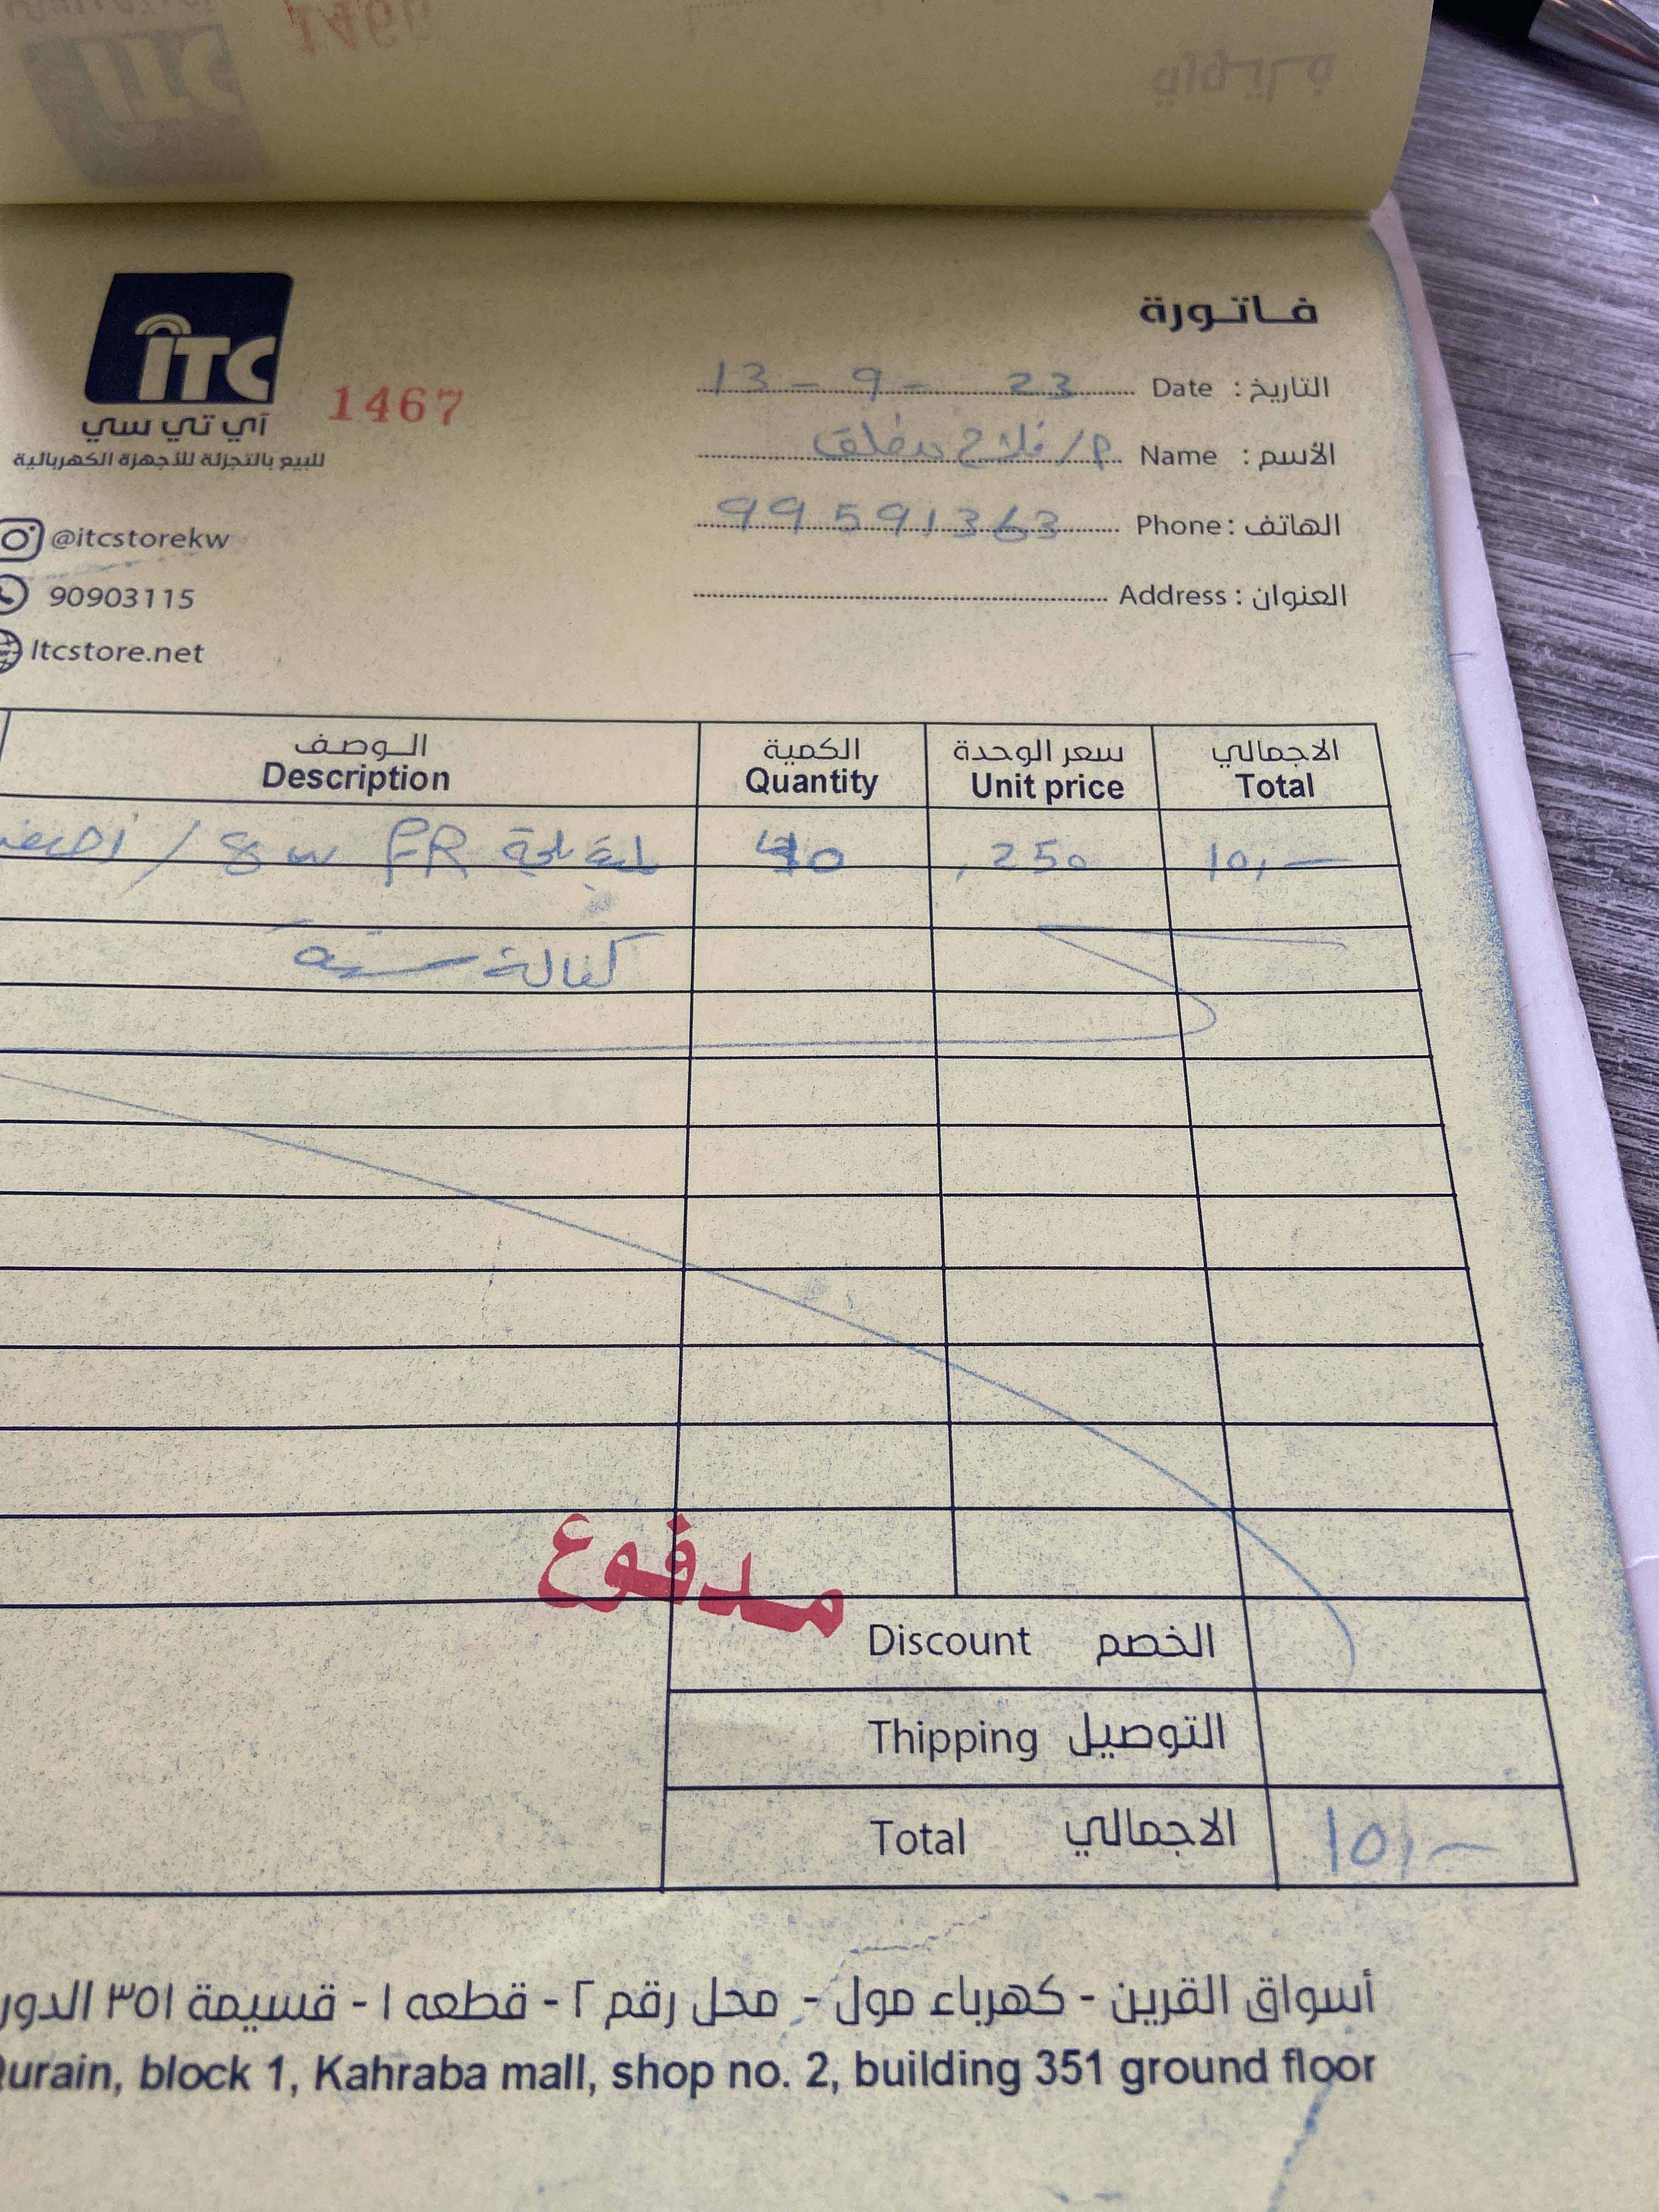 فاتورة
ITC
آي تي سي
للبيع بالتجزئة للأجهزة الكهربائية
1467
@itcstorekw
90903115
Itcstore.net
التاريخ : Date 13 - 9 - 23
الأسم : Name م/ فلاح
الهاتف : Phone 99591363
العنوان : Address
الوصف الكمية سعر الوحدة الاجمالي
Description Quantity Unit price Total
FR 8 w / 40 ,250 10,-
كفالة سنة
مدفوع
Discount الخصم
Thipping التوصيل
Total الاجمالي 10,-
أسواق القرين - كهرباء مول - محل رقم ٢ - قطعه ١ - قسيمة ٣٥١ الدور
urain, block 1, Kahraba mall, shop no. 2, building 351 ground floor